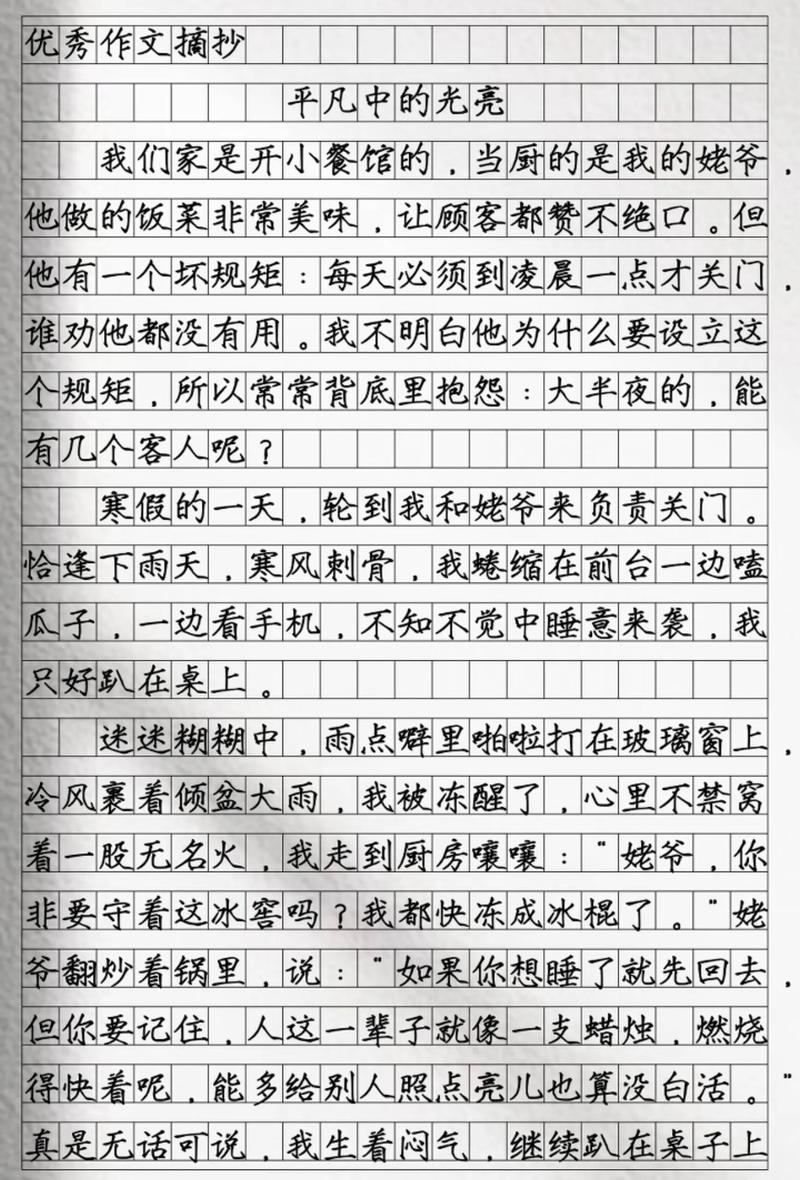 优秀作文摘抄
平凡中的光亮
我们家是开小餐馆的，当厨的是我的姥爷，
他做的饭菜非常美味，让顾客都赞不绝口。但
他有一个坏规矩：每天必须到凌晨一点才关门，
谁劝他都没有用。我不明白他为什么要设立这
个规矩，所以常常背底里抱怨：大半夜的，能
有几个客人呢？
寒假的一天，轮到我和姥爷来负责关门。
恰逢下雨天，寒风刺骨，我蜷缩在前台一边嗑
瓜子，一边看手机，不知不觉中睡意来袭，我
只好趴在桌上。
迷迷糊糊中，雨点噼里啪啦打在玻璃窗上，
冷风裹着倾盆大雨，我被冻醒了，心里不禁窝
着一股无名火，我走到厨房嚷嚷："姥爷，你
非要守着这冰窖吗？我都快冻成冰棍了。"姥
爷翻炒着锅里，说："如果你想睡了就先回去，
但你要记住，人这一辈子就像一支蜡烛，燃烧
得快着呢，能多给别人照点亮儿也算没白活。"
真是无话可说，我生着闷气，继续趴在桌子上